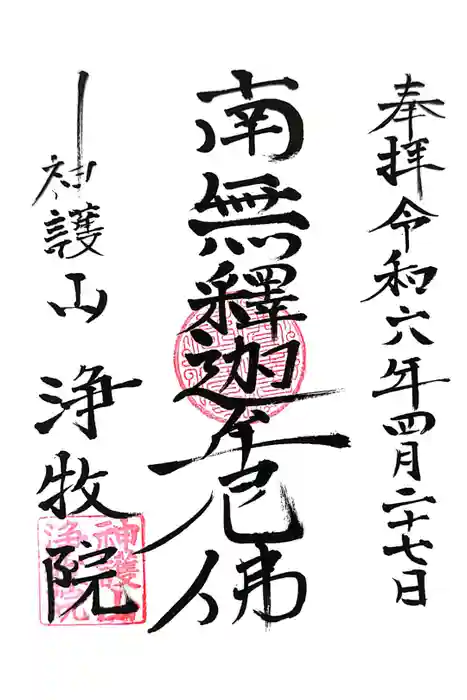 奉拝令和六年四月二十七日
南無釋迦牟尼佛
神護山 浄牧院
神護山
浄牧院